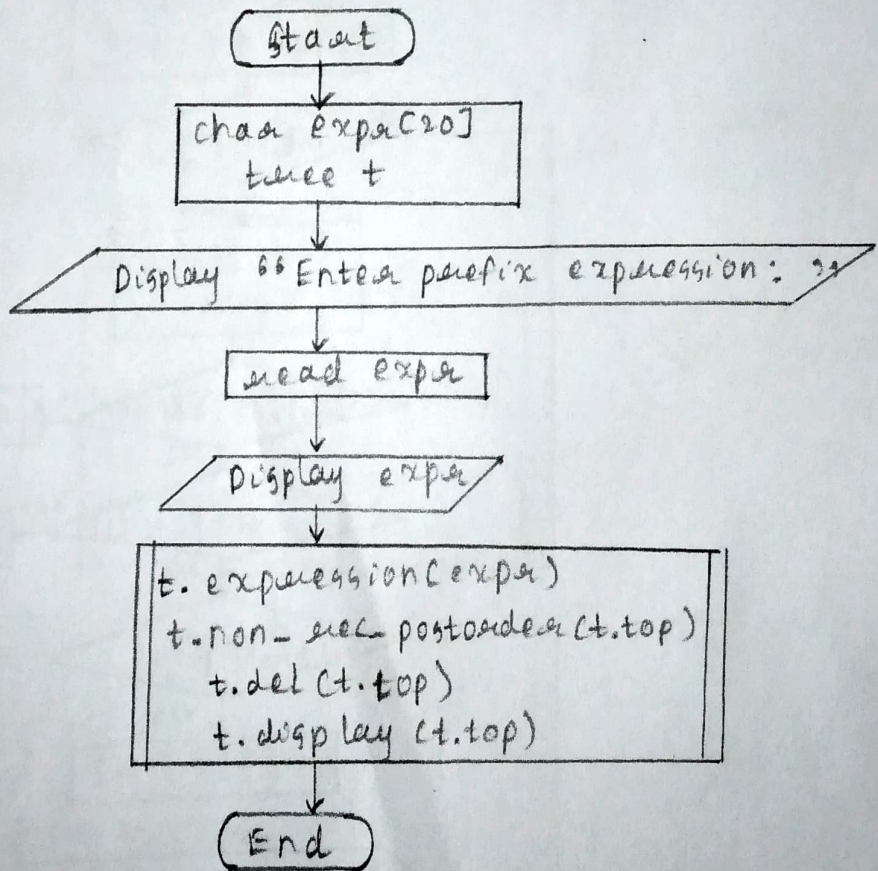 Start
char expr[20]
tree t
Display "Enter prefix expression: "
read expr
Display expr
t. expression(expr)
t.non_rec_postorder(t.top)
t.del(t.top)
t.display(t.top)
End